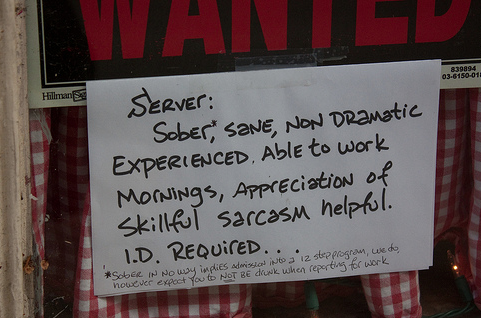 WANTED
839894
03-6150-01
Hillman
Server:
Sober,* SANE, NON DRamatic
EXPERIENCED, Able to work
Mornings, Appreciation of
Skillful sarcasm helpful.
I.D. REQUIRED...
*SOBER IN NO way implies admission into a 12 step program, we do,
however expect you to NOT BE drunk when reporting for work